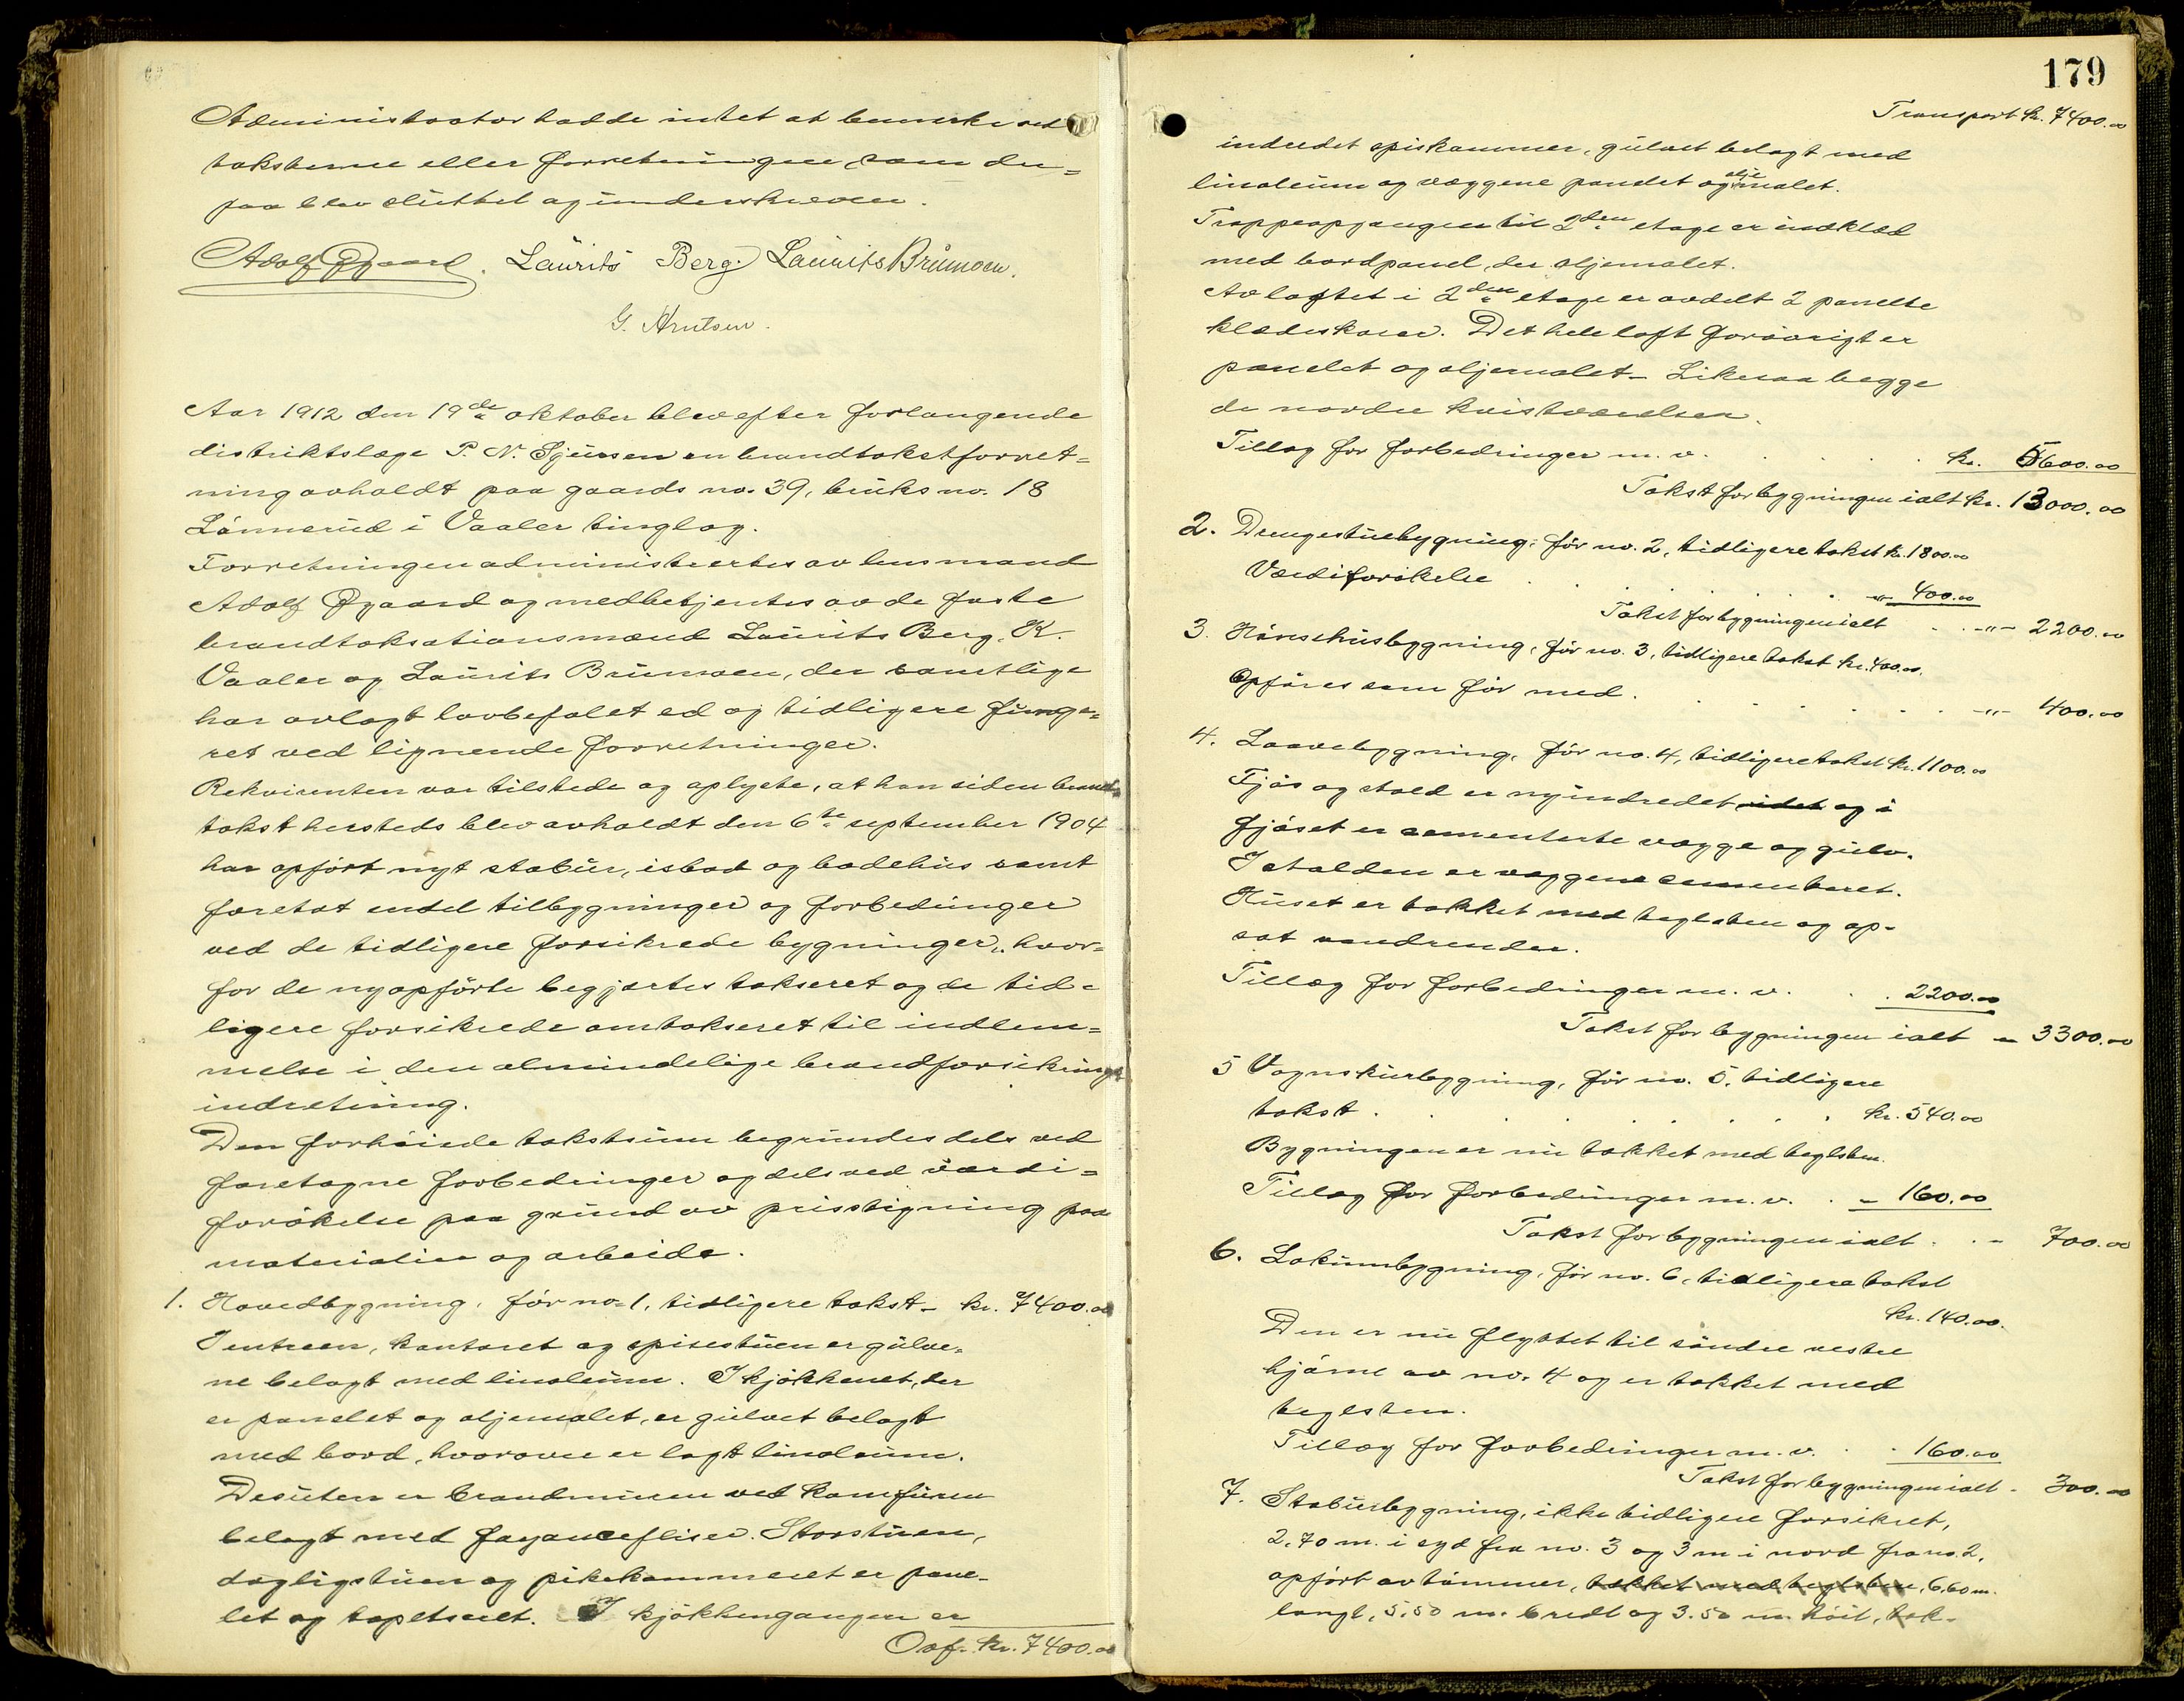 Administrator hadde intet at bemerke ved
taksterne eller forretningen, som der=
paa blev sluttet og underskreven.
Adolf Øgaard. Laurits Berg. Laurits Brunsen.
G. Knutsen.
Aar 1912 den 19de oktober blev efter forlangende
distriktslæge P. N. Sjursen en brandtakstforret=
ning avholdt paa gaards no. 39, bruks no. 18
Lönnerud i Vaaler tinglag.
Forretningen administrertes av lensmand
Adolf Øgaard og medbetjentes av de faste
brandtaksationsmænd Laurits Berg, K.
Vaaler og Laurits Brunsen, der samtlige
har avlagt lovbefalet ed og tidligere funge=
ret ved lignende forretninger.
Rekvirenten var tilstede og oplyste, at han siden brand=
takst hersteds blev avholdt den 6te september 1904
har opført nyt stabur, isbod og badehus samt
foretat endel tilbygninger og forbedringer
ved de tidligere forsikrede bygninger, hvor=
for de nyopførte begjærtes takseret og de tid=
ligere forsikrede omtakseret til indlem=
melse i den almindelige brandforsikrings
indretning.
Den forhöiede takstsum begrundes dels ved
foretagne forbedringer og dels ved værdi=
forökelse paa grund av prisstigning paa
materialier og arbeide.
1. Hovedbygning, för no. 1, tidligere takst - kr. 7400.00
I entreen, kontoret og spisestuen er gulve=
ne belagt med linoleum. I kjökkenet, der
er panelet og oljemalet, er gulvet belagt
med bord, hvorover er lagt linoleum.
Desuten er brandmuren ved komfuren
belagt med fayancefliser. Storstuen,
dagligstuen og pikekammeret er pane-
let og tapetseret. I kjökkengangen er
Ovf. kr. 7400.00
179
Transport kr. 7400.00
indredet spiskammer, gulvet belagt med
linoleum og væggene panelet og oljemalet.
Trappeopgangen til 2den etage er indklæd
med bordpanel, der oljemalet.
Av loftet i 2den etage er avdelt 2 panelte
klædeskaer. Det hele loft forövrigt er
panelet og oljemalet - Likesaa begge
de nordre kvistværelser.
Tillæg for forbedringer m. v. . . . . kr. 5600.00
Takst for bygningen ialt kr. 13000.00
2. Drengestuebygning, för no. 2, tidligere takst kr. 1800.00
Værdiforökelse . . . . . -"- 400.00
Takst for bygningen ialt . . -"- 2200.00
3. Hönsehusbygning, för no. 3, tidligere takst kr. 400.00.
Opföres som för med . . . . . . -"- 400.00
4. Laavebygning, för no. 4, tidligere takst kr. 1100.00
Fjös og stald er nyindredet idet og i
fjöset er cementerte vægge og gulv.
I stalden er væggene cementeret.
Huset er tækket med teglsten og op-
sat vandrender.
Tillæg for forbedringer m. v. . . 2200.00
Takst for bygningen ialt - 3300.00
5 Vognskurbygning, för no. 5, tidligere
takst . . . . . . . kr. 540.00
Bygningen er nu tækket med teglsten.
Tillæg for forbedringer m. v. . - 160.00
Takst for bygningen ialt . . - 700.00
6. Lokumbygning, för no. 6, tidligere takst
kr. 140.00.
Den er nu flyttet til söndre vestre
hjörne av no. 4 og er tækket med
teglsten.
Tillæg for forbedringer m. v. . . 160.00
Takst for bygningen ialt - 300.00
7. Staburbygning, ikke tidligere forsikret,
2.70 m. i syd fra no. 3 og 3 m i nord fra no. 2,
opfört av tömmer, tækket med teglsten, 6.60 m.
langt, 5.50 m. bredt og 3.50 m. höit, tæk-